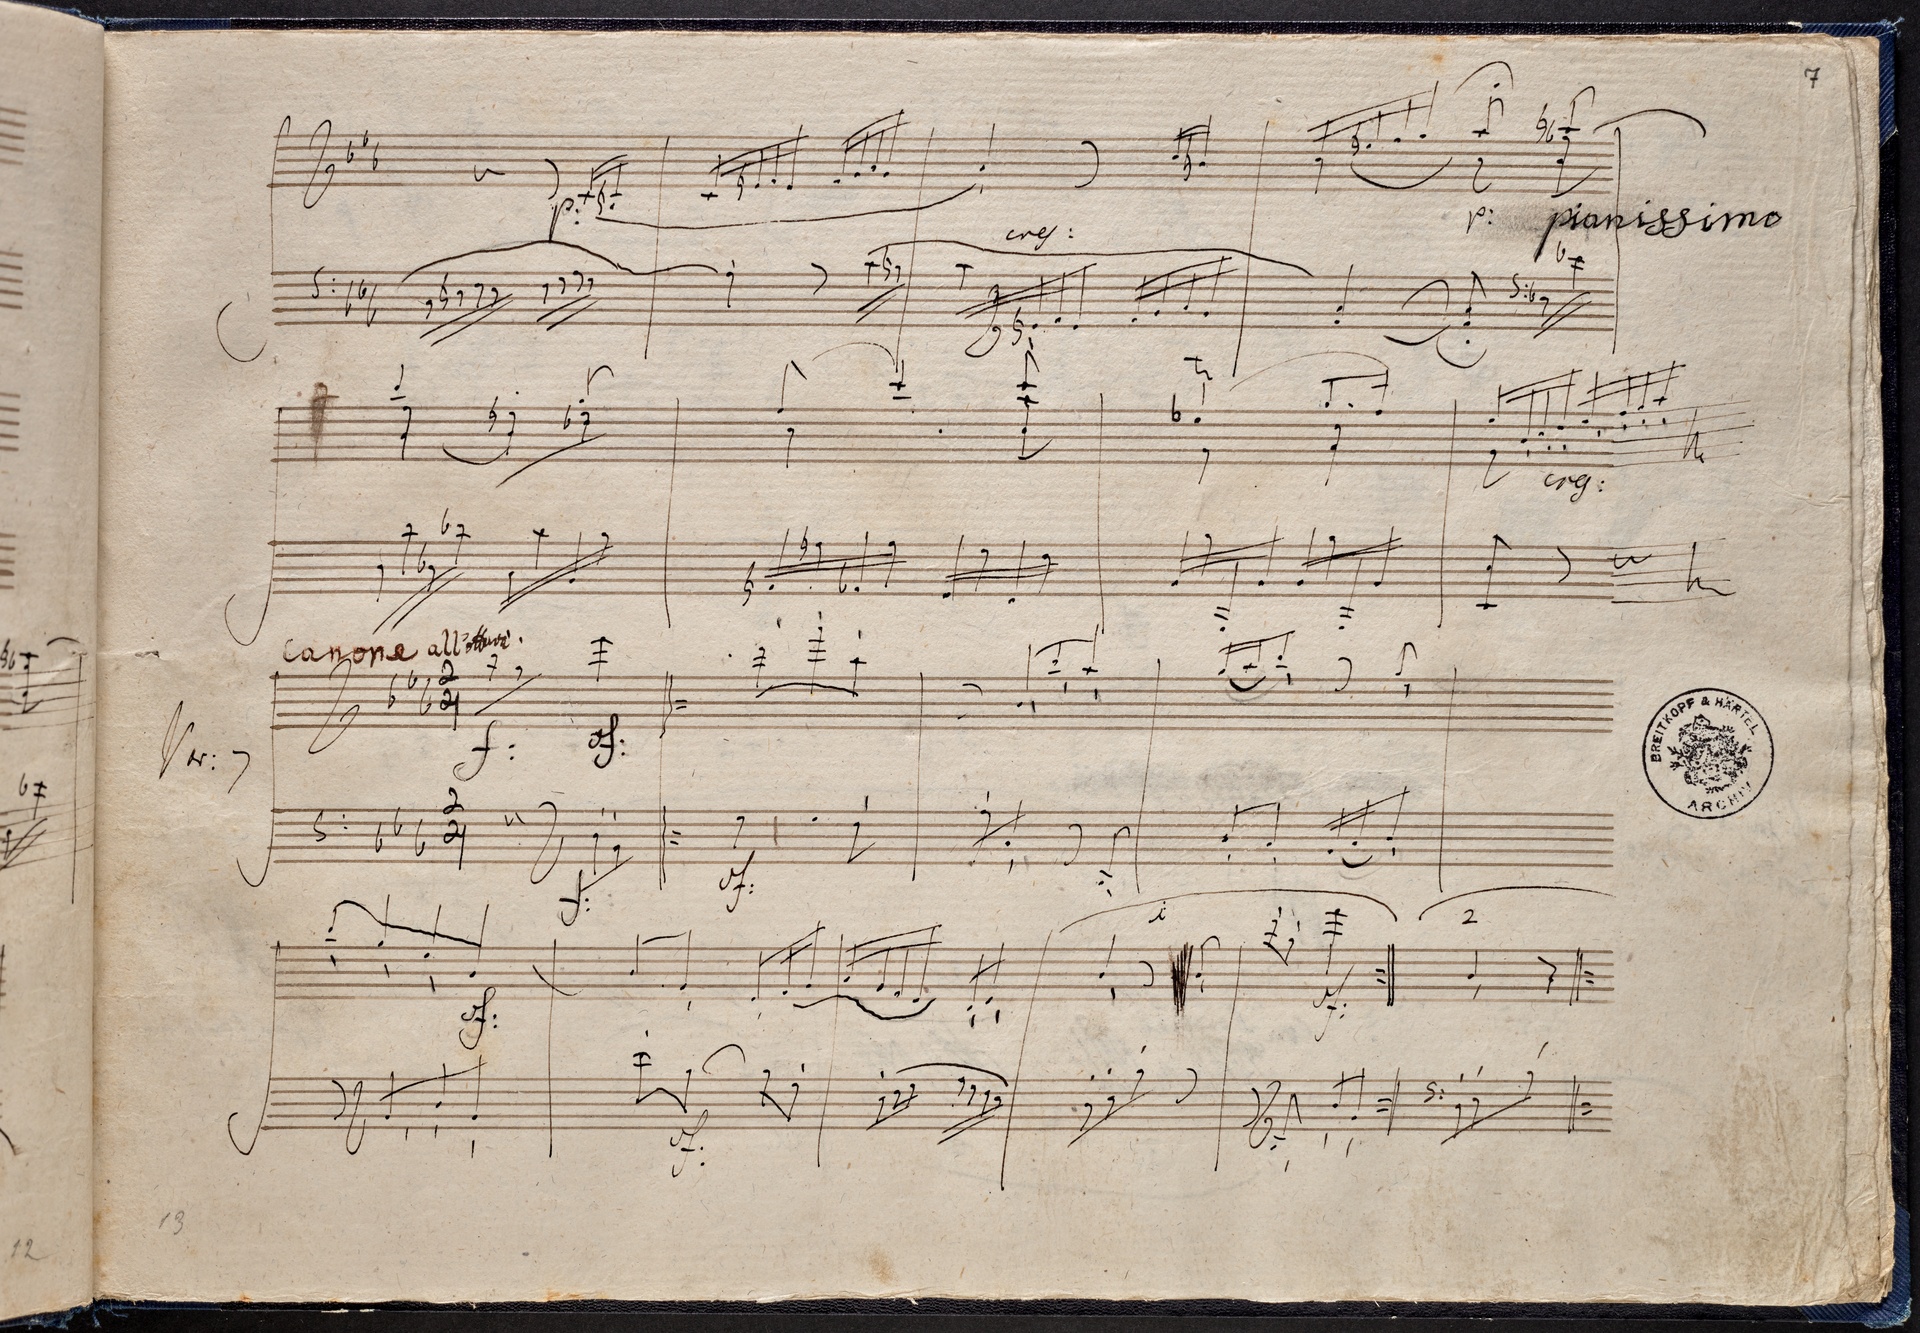 7
p:
p: pianissimo
cres:
cres:
canone all'ottava.
2
4
f: sf:
Var: 7
BREITKOPF & HÄRTEL
ARCHIV
2
4
f: sf:
1 2
sf: sf:
sf:
13
12